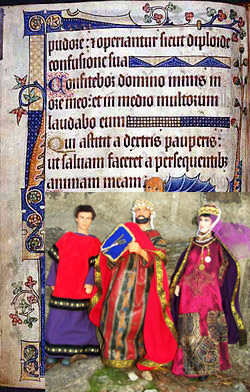 pudore: ⁊ operiantur sicut diploide
confusione sua
Confitebor domino nimis in
ore meo: et in medio multorum
laudabo eum
Qui astitit a dextris pauperis:
ut saluam faceret a persequentibꝫ
animam meam